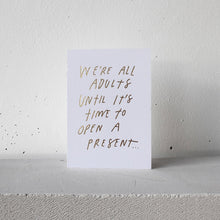 WE'RE ALL
ADULTS
UNTIL IT'S
TIME TO
OPEN A
PRESENT...